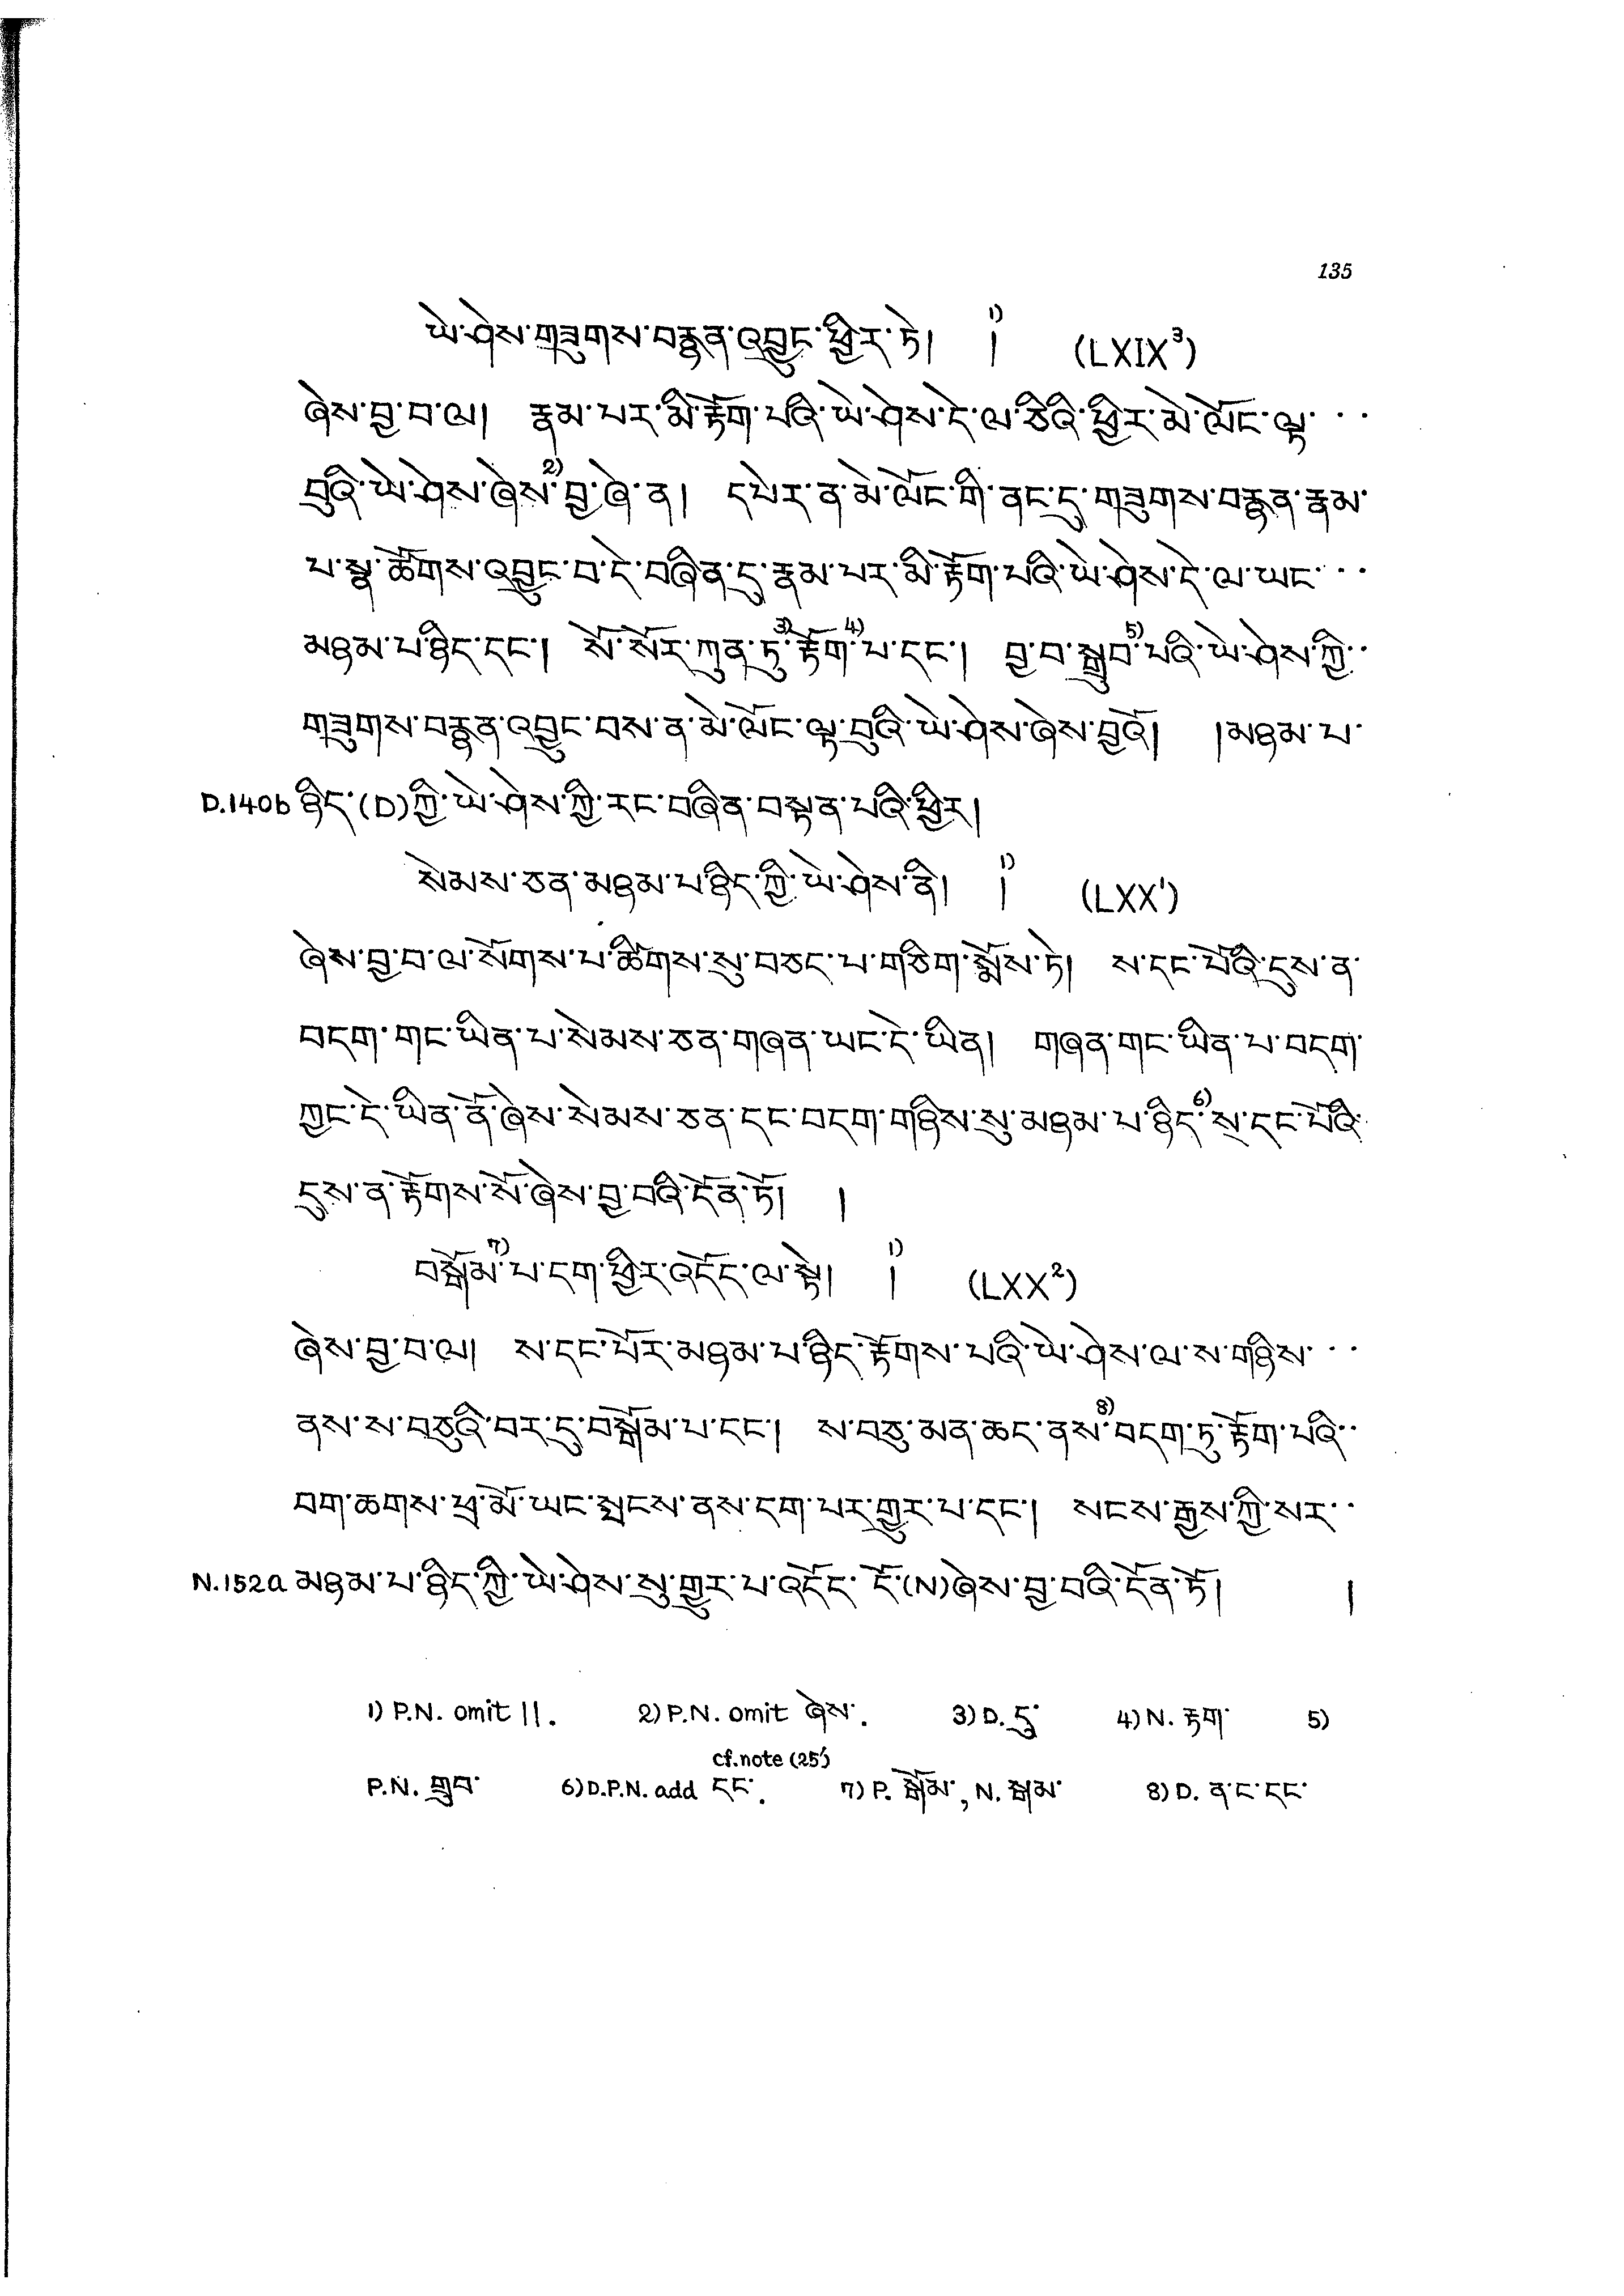 135
ཡེ་ཤེས་གཟུགས་བརྙན་འབྱུང་ཕྱིར་ཏེ། །1) (LXIX3)
ཞེས་བྱ་བ་ལ། རྣམ་པར་མི་རྟོག་པའི་ཡེ་ཤེས་དེ་ལ་ཅིའི་ཕྱིར་མེ་ལོང་ལྟ་··
བུའི་ཡེ་ཤེས་ཞེས་2)བྱ་ཞེ་ན། དཔེར་ན་མེ་ལོང་གི་ནང་དུ་གཟུགས་བརྙན་རྣམ་
པ་སྣ་ཚོགས་འབྱུང་བ་དེ་བཞིན་དུ་རྣམ་པར་མི་རྟོག་པའི་ཡེ་ཤེས་དེ་ལ་ཡང་··
མཉམ་པ་ཉིད་དང་། སོ་སོར་ཀུན་ཏུ་3)རྟོག་4)པ་དང་། བྱ་བ་སྒྲུབ་5)པའི་ཡེ་ཤེས་ཀྱི་·
གཟུགས་བརྙན་འབྱུང་བས་ན་མེ་ལོང་ལྟ་བུའི་ཡེ་ཤེས་ཞེས་བྱའོ། །མཉམ་པ་
D.140b ཉིད་(D)ཀྱི་ཡེ་ཤེས་ཀྱི་རང་བཞིན་བསྟན་པའི་ཕྱིར།
སེམས་ཅན་མཉམ་པ་ཉིད་ཀྱི་ཡེ་ཤེས་ནི། །1) (LXX1)
ཞེས་བྱ་བ་ལ་སོགས་པ་ཚིགས་སུ་བཅད་པ་གཅིག་སྨོས་ཏེ། ས་དང་པོའི་དུས་ན་
བདག་གང་ཡིན་པ་སེམས་ཅན་གཞན་ཡང་དེ་ཡིན། གཞན་གང་ཡིན་པ་བདག་
ཀྱང་དེ་ཡིན་ནོ་ཞེས་སེམས་ཅན་དང་བདག་གཉིས་སུ་མཉམ་པ་ཉིད་6)ས་དང་པོའི་
དུས་ན་རྟོགས་སོ་ཞེས་བྱ་བའི་དོན་ཏོ། །
བསྒོམ་7)པ་དག་ཕྱིར་འདོད་ལ་སྟེ། །1) (LXX2)
ཞེས་བྱ་བ་ལ། ས་དང་པོར་མཉམ་པ་ཉིད་རྟོགས་པའི་ཡེ་ཤེས་ལ་ས་གཉིས་··
ནས་ས་བཅུའི་བར་དུ་བསྒོམ་པ་དང་། ས་བཅུ་མན་ཆད་ནས་8)བདག་ཏུ་རྟོག་པའི་·
བག་ཆགས་ཕྲ་མོ་ཡང་སྤངས་ནས་དག་པར་གྱུར་པ་དང་། སངས་རྒྱས་ཀྱི་སར་·
N.152a མཉམ་པ་ཉིད་ཀྱི་ཡེ་ཤེས་སུ་གྱུར་པ་འདོད་དོ་(N)ཞེས་བྱ་བའི་དོན་ཏོ། །
1) P.N. omit ||. 2) P.N. omit ཞེས་. 3) D. དུ་ 4) N. རྟག་ 5)
P.N. གྲུབ་ 6) D.P.N. add དང་. cf.note (25') 7) P. སྒོམ་, N. སྒམ་ 8) D. ནང་དང་